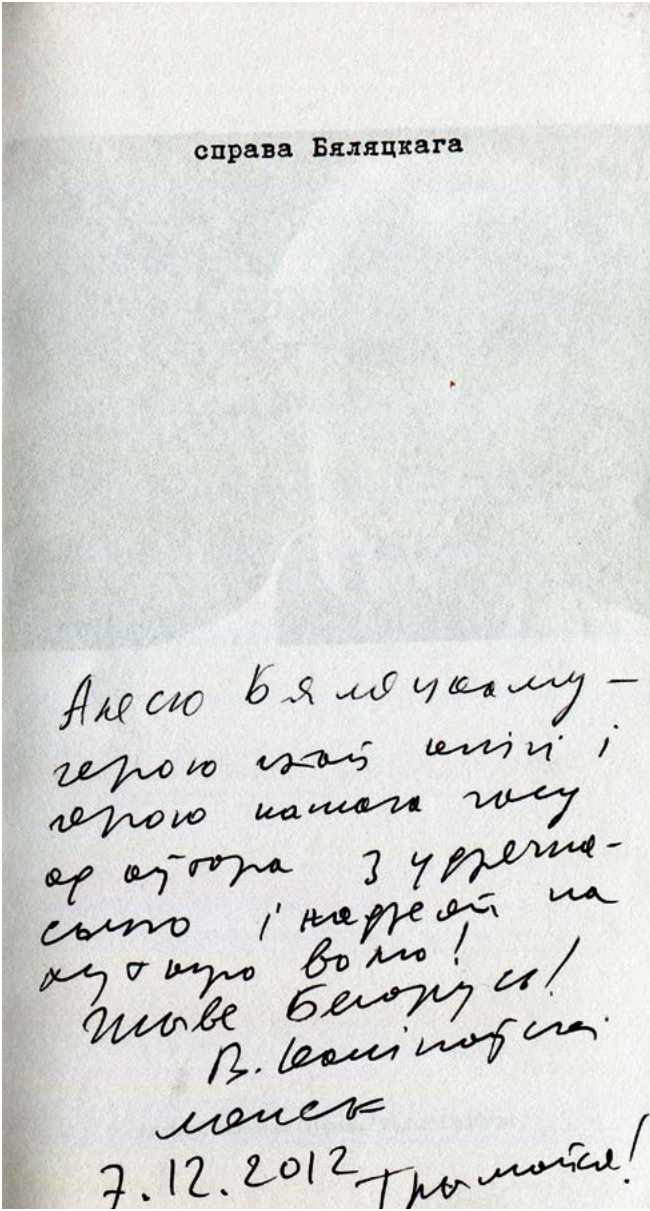 справа Бяляцкага
Алесю Бяляцкаму –
герою маёй кнігі і
герою нашага часу
ад аўтара З удзячна-
сьцю і надзеяй на
хуткую волю!
Жыве Беларусь!
В. Каліноўскі
Менск
7.12.2012 Трымайся!